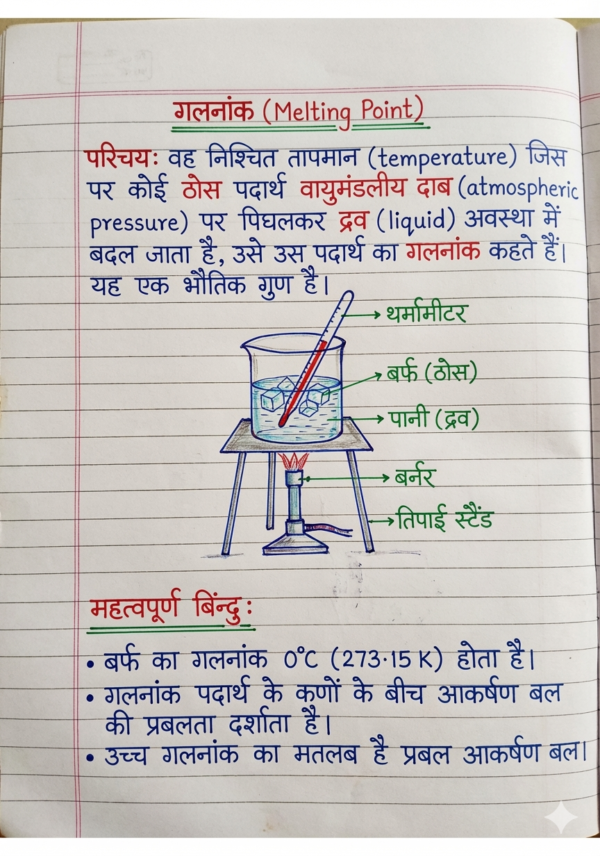 गलनांक (Melting Point)
परिचय: वह निश्चित तापमान (temperature) जिस
पर कोई ठोस पदार्थ वायुमंडलीय दाब (atmospheric
pressure) पर पिघलकर द्रव (liquid) अवस्था में
बदल जाता है, उसे उस पदार्थ का गलनांक कहते हैं।
यह एक भौतिक गुण है।
थर्मामीटर
बर्फ (ठोस)
पानी (द्रव)
बर्नर
तिपाई स्टैंड
महत्वपूर्ण बिंन्दु:
• बर्फ का गलनांक 0°C (273.15 K) होता है।
• गलनांक पदार्थ के कणों के बीच आकर्षण बल
की प्रबलता दर्शाता है।
• उच्च गलनांक का मतलब है प्रबल आकर्षण बल।